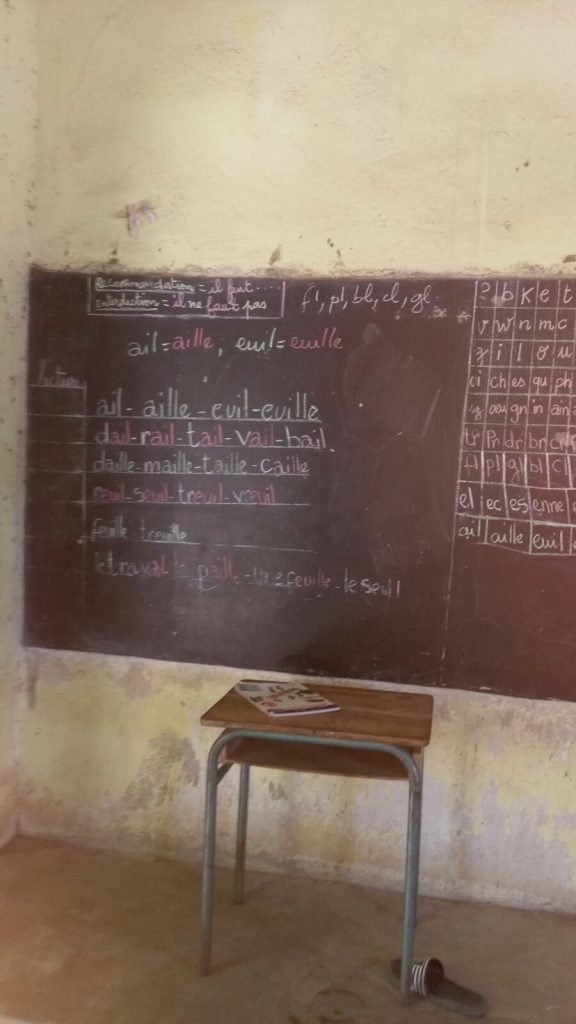 Recommandation = il faut ....
Interdiction = il ne faut pas
fl, pl, bl, cl, gl
ail = aille ; euil = euille
lecture
ail - aille - euil - euille
dail - rail - tail - vail - bail
daille - maille - taille - caille
reuil - seuil - treuil - vreuil
feuille - treuille
le travail - la paille - une feuille - le seuil
b k e t
v w n m c
z i l o u
ci ch es qu ph
oeu gn in ain
tr pr dr br cr
fl pl gl bl cl
el ec es enne
ail aille euil